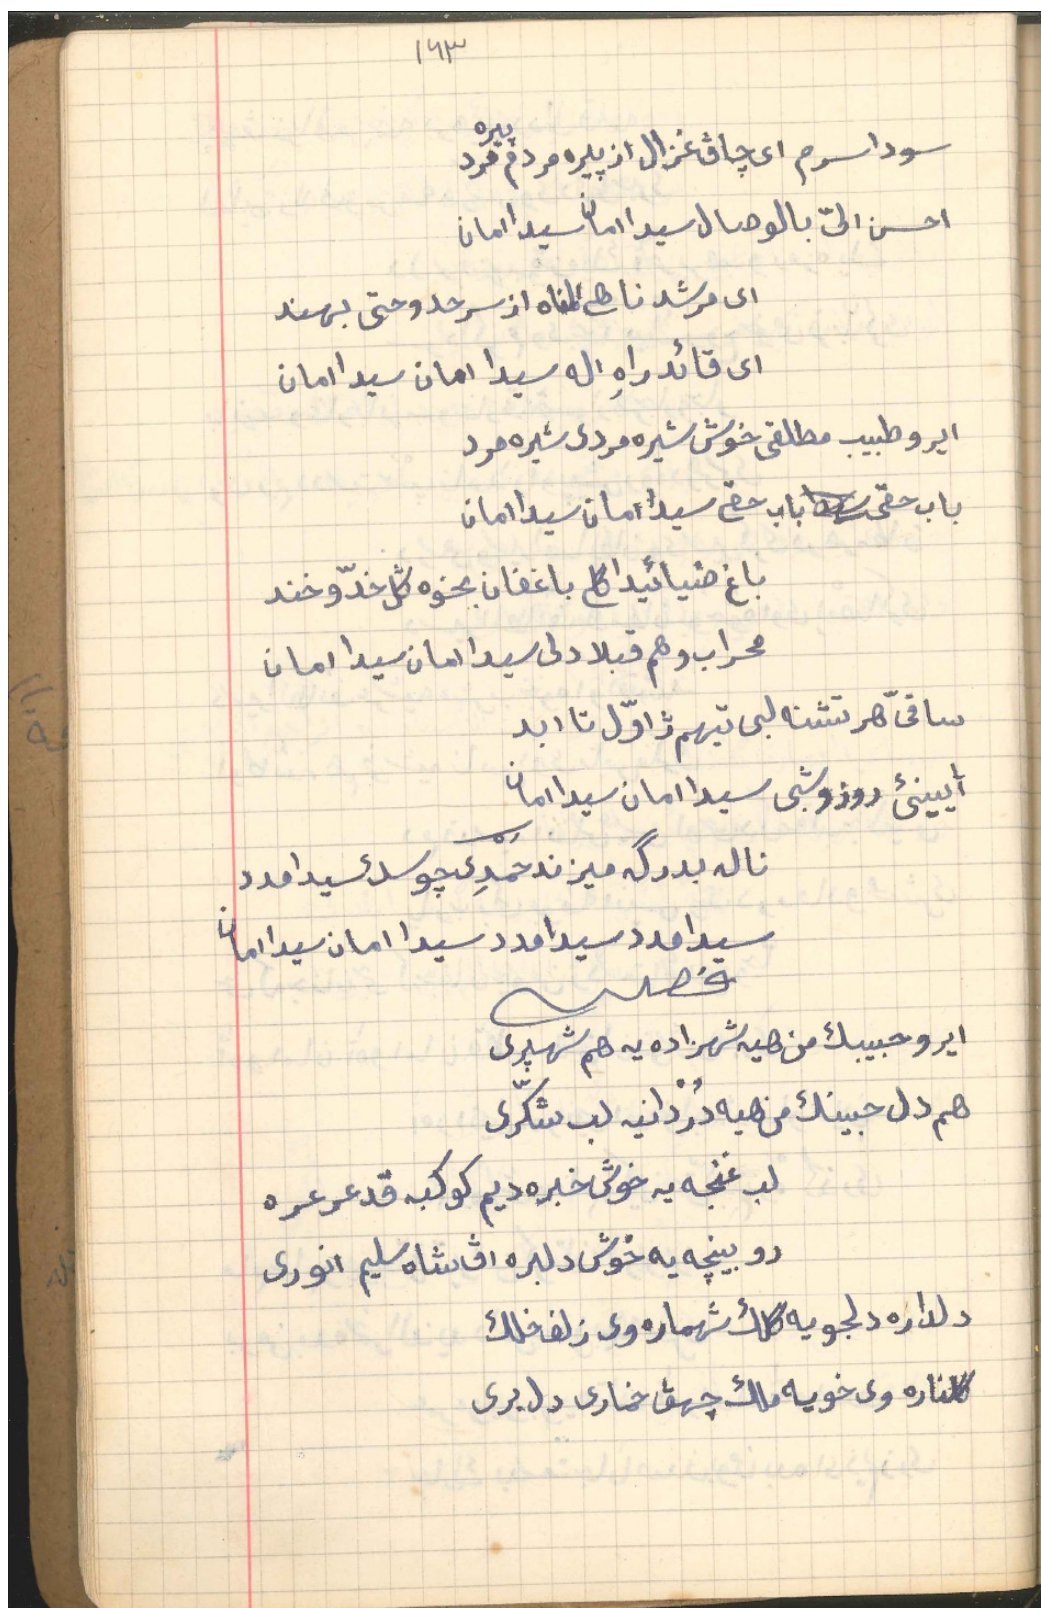 ١٦٣
پیره
سودا سرم ای چاڤ غزال از پیره مردم مرد
احسن الیّ بالوصال سیدا امان سیدا امان
ای مرشد ناهی از سرحد و حتی بهند
ای قائد راهِ اله سیدا امان سیدا امان
ایرو طبیب مطلقی خوش شیره مردی شیره مرد
باب حقی باب حقی سیدا امان سیدا امان
باغ ضیائیدا کلی باغفان بخوه گل خدّ و خند
محراب و هم قبلا دلی سیدا امان سیدا امان
ساقیّ هر تشنه لبی تیهم ژ اوّل تا ابد
آیینئ روز و شبی سیدا امان سیدا امان
ناله بدرگه میزند حَمْدِی چو سدی سیدا مدد
سیدا مدد سیدا مدد سیدا امان سیدا امان
ایرو حبیبك من هیه شهزاده یه هم شهپری
هم دل حبینك من هیه دُرْدانیه لب شکّری
لب غنچه یه خوش خبره دیم کوکبه قد عرعره
رو بینچه یه خوش دلبره اڤ شاه سلیم انوری
دلداره دلجویه گلك شهماره وی زلف خلك
گلناره وی خویه ملك چهڤ خماری دل بری